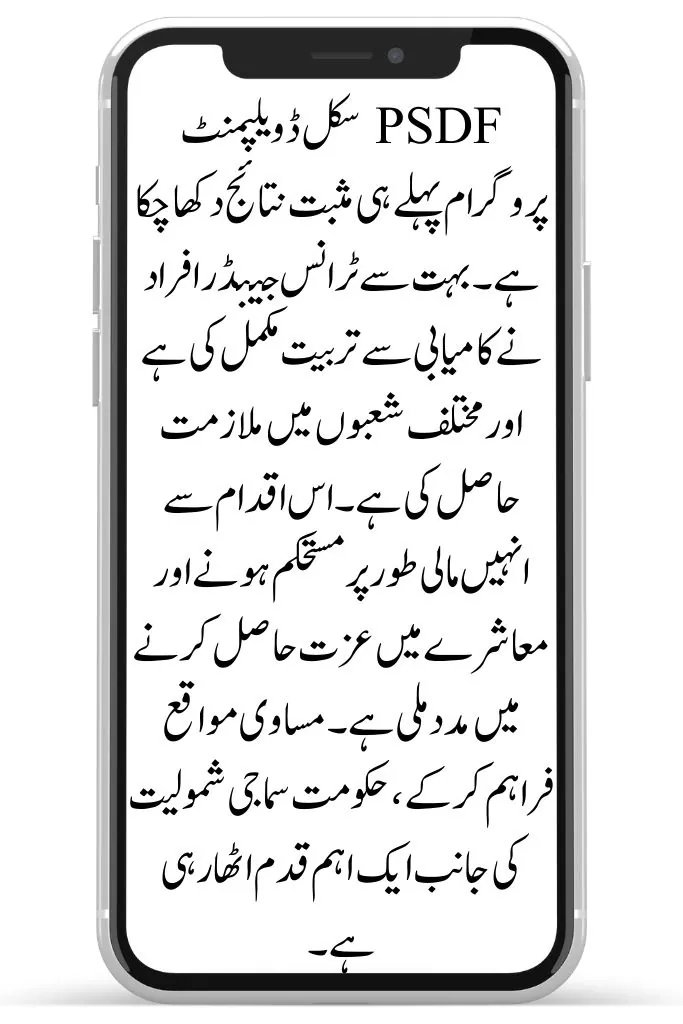 PSDF سکل ڈویلپمنٹ
پروگرام پہلے ہی مثبت نتائج دکھا چکا
ہے۔ بہت سے ٹرانس جیبںڈر افراد
نے کامیابی سے تربیت مکمل کی ہے
اور مختلف شعبوں میں ملازمت
حاصل کی ہے۔ اس اقدام سے
انہیں مالی طور پر مستحکم ہونے اور
معاشرے میں عزت حاصل کرنے
میں مدد ملی ہے۔ مساوی مواقع
فراہم کر کے، حکومت سماجی شمولیت
کی جانب ایک اہم قدم اٹھا رہی
ہے۔